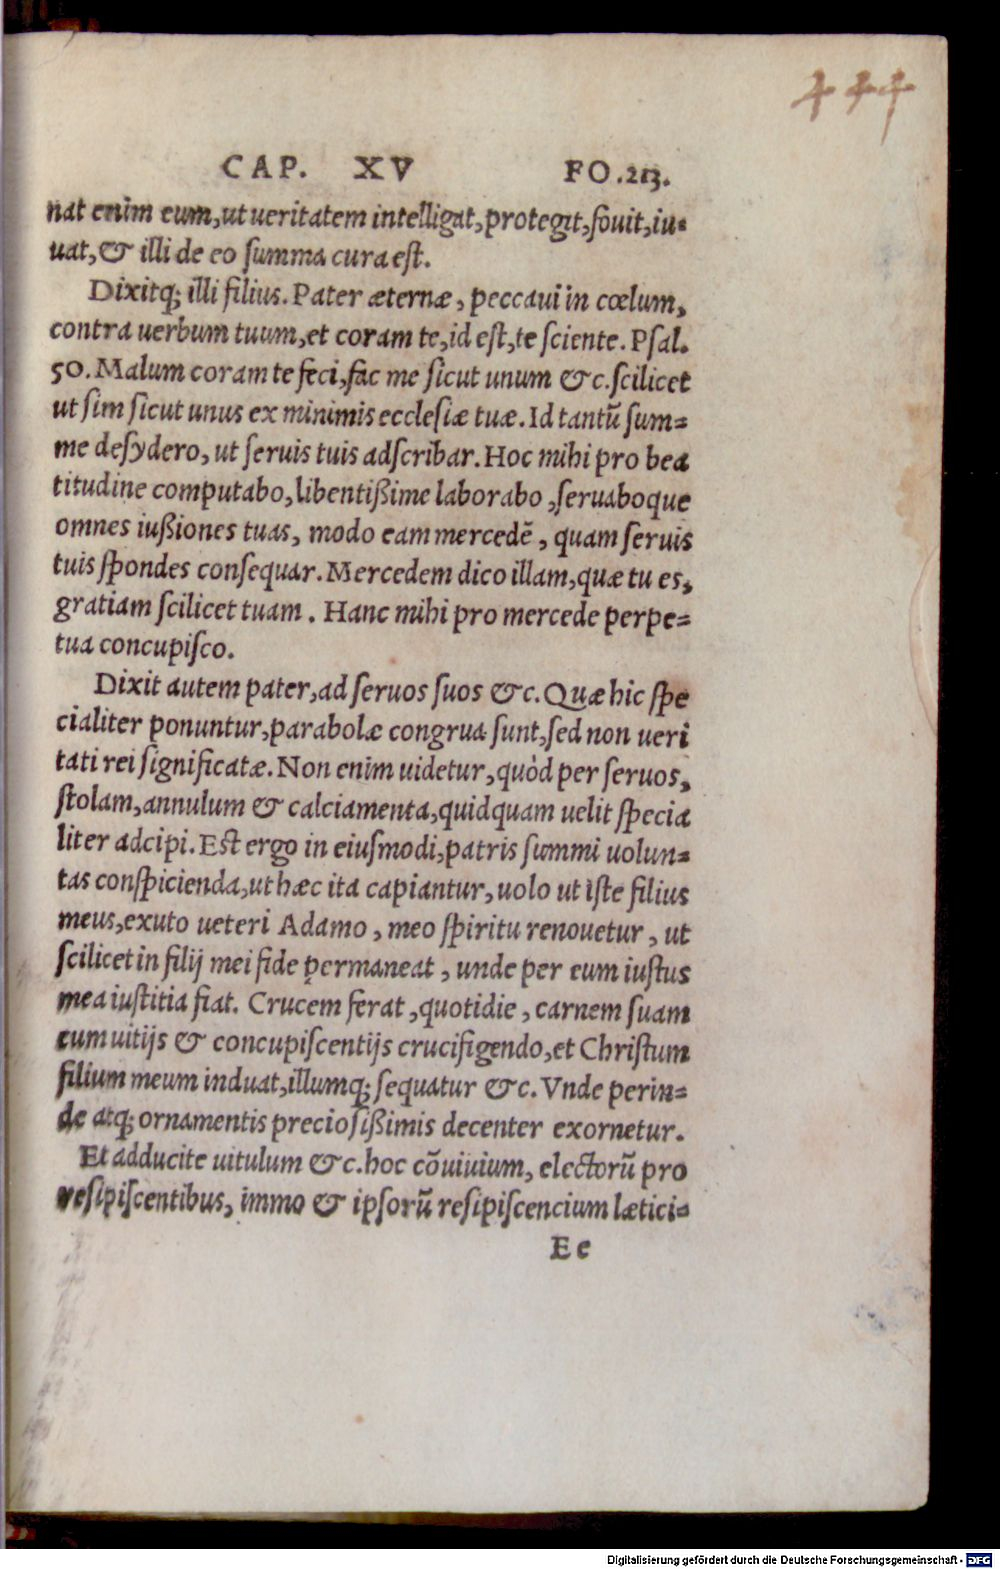 444
CAP. XV FO.213.
nat enim eum,ut ueritatem intelligat,protegit,fouit,iu-
uat,& illi de eo ſumma cura eſt.
Dixitq; illi filius. Pater æternæ, peccaui in cœlum,
contra uerbum tuum,et coram te,id eſt,te ſciente. Pſal.
50. Malum coram te feci,fac me ſicut unum &c.ſcilicet
ut ſim ſicut unus ex minimis eccleſiæ tuæ. Id tantũ ſum=
me deſydero, ut ſeruis tuis adſcribar. Hoc mihi pro bea
titudine computabo,libentißime laborabo ,ſeruaboque
omnes iußiones tuas, modo eam mercedẽ , quam ſeruis
tuis ſpondes conſequar. Mercedem dico illam,quæ tu es,
gratiam ſcilicet tuam . Hanc mihi pro mercede perpe=
tua concupiſco.
Dixit autem pater,ad ſeruos ſuos &c. Quæ hic ſpe
cialiter ponuntur,parabolæ congrua ſunt,ſed non ueri
tati rei ſignificatæ. Non enim uidetur,quòd per ſeruos,
ſtolam,annulum & calciamenta,quidquam uelit ſpecia
liter adcipi. Eſt ergo in eiuſmodi,patris ſummi uolun=
tas conſpicienda,ut hæc ita capiantur,uolo ut iſte filius
meus,exuto ueteri Adamo , meo ſpiritu renouetur , ut
ſcilicet in filij mei fide permaneat , unde per eum iuſtus
mea iuſtitia fiat. Crucem ferat ,quotidie , carnem ſuam
cum uitijs & concupiſcentijs crucifigendo,et Chriſtum
filium meum induat,illumq; ſequatur &c. Vnde perin=
de atq; ornamentis precioſißimis decenter exornetur.
Et adducite uitulum &c.hoc cõuiuium, electorũ pro
reſipiſcentibus, immo & ipſorũ reſipiſcencium lætici=
Ee
Digitalisierung gefördert durch die Deutsche Forschungsgemeinschaft - DFG